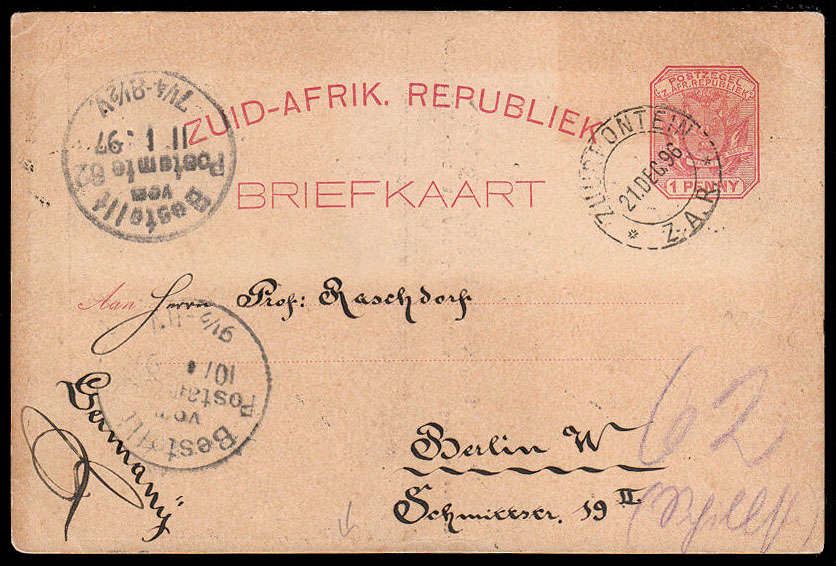 ZUID-AFRIK. REPUBLIEK
BRIEFKAART
POSTZEGEL
Z. AFR. REPUBLIEK
1 PENNY
ZUURFONTEIN
21.DEC.96
Z.A.R.
Bestellt
vom
Postamte 62
11 1. 97
7¼-8½V.
Aan Herrn Prof: Raschdorf
Bestellt
vom
Berlin W
62
Schmittstr. 19 II.
Germany